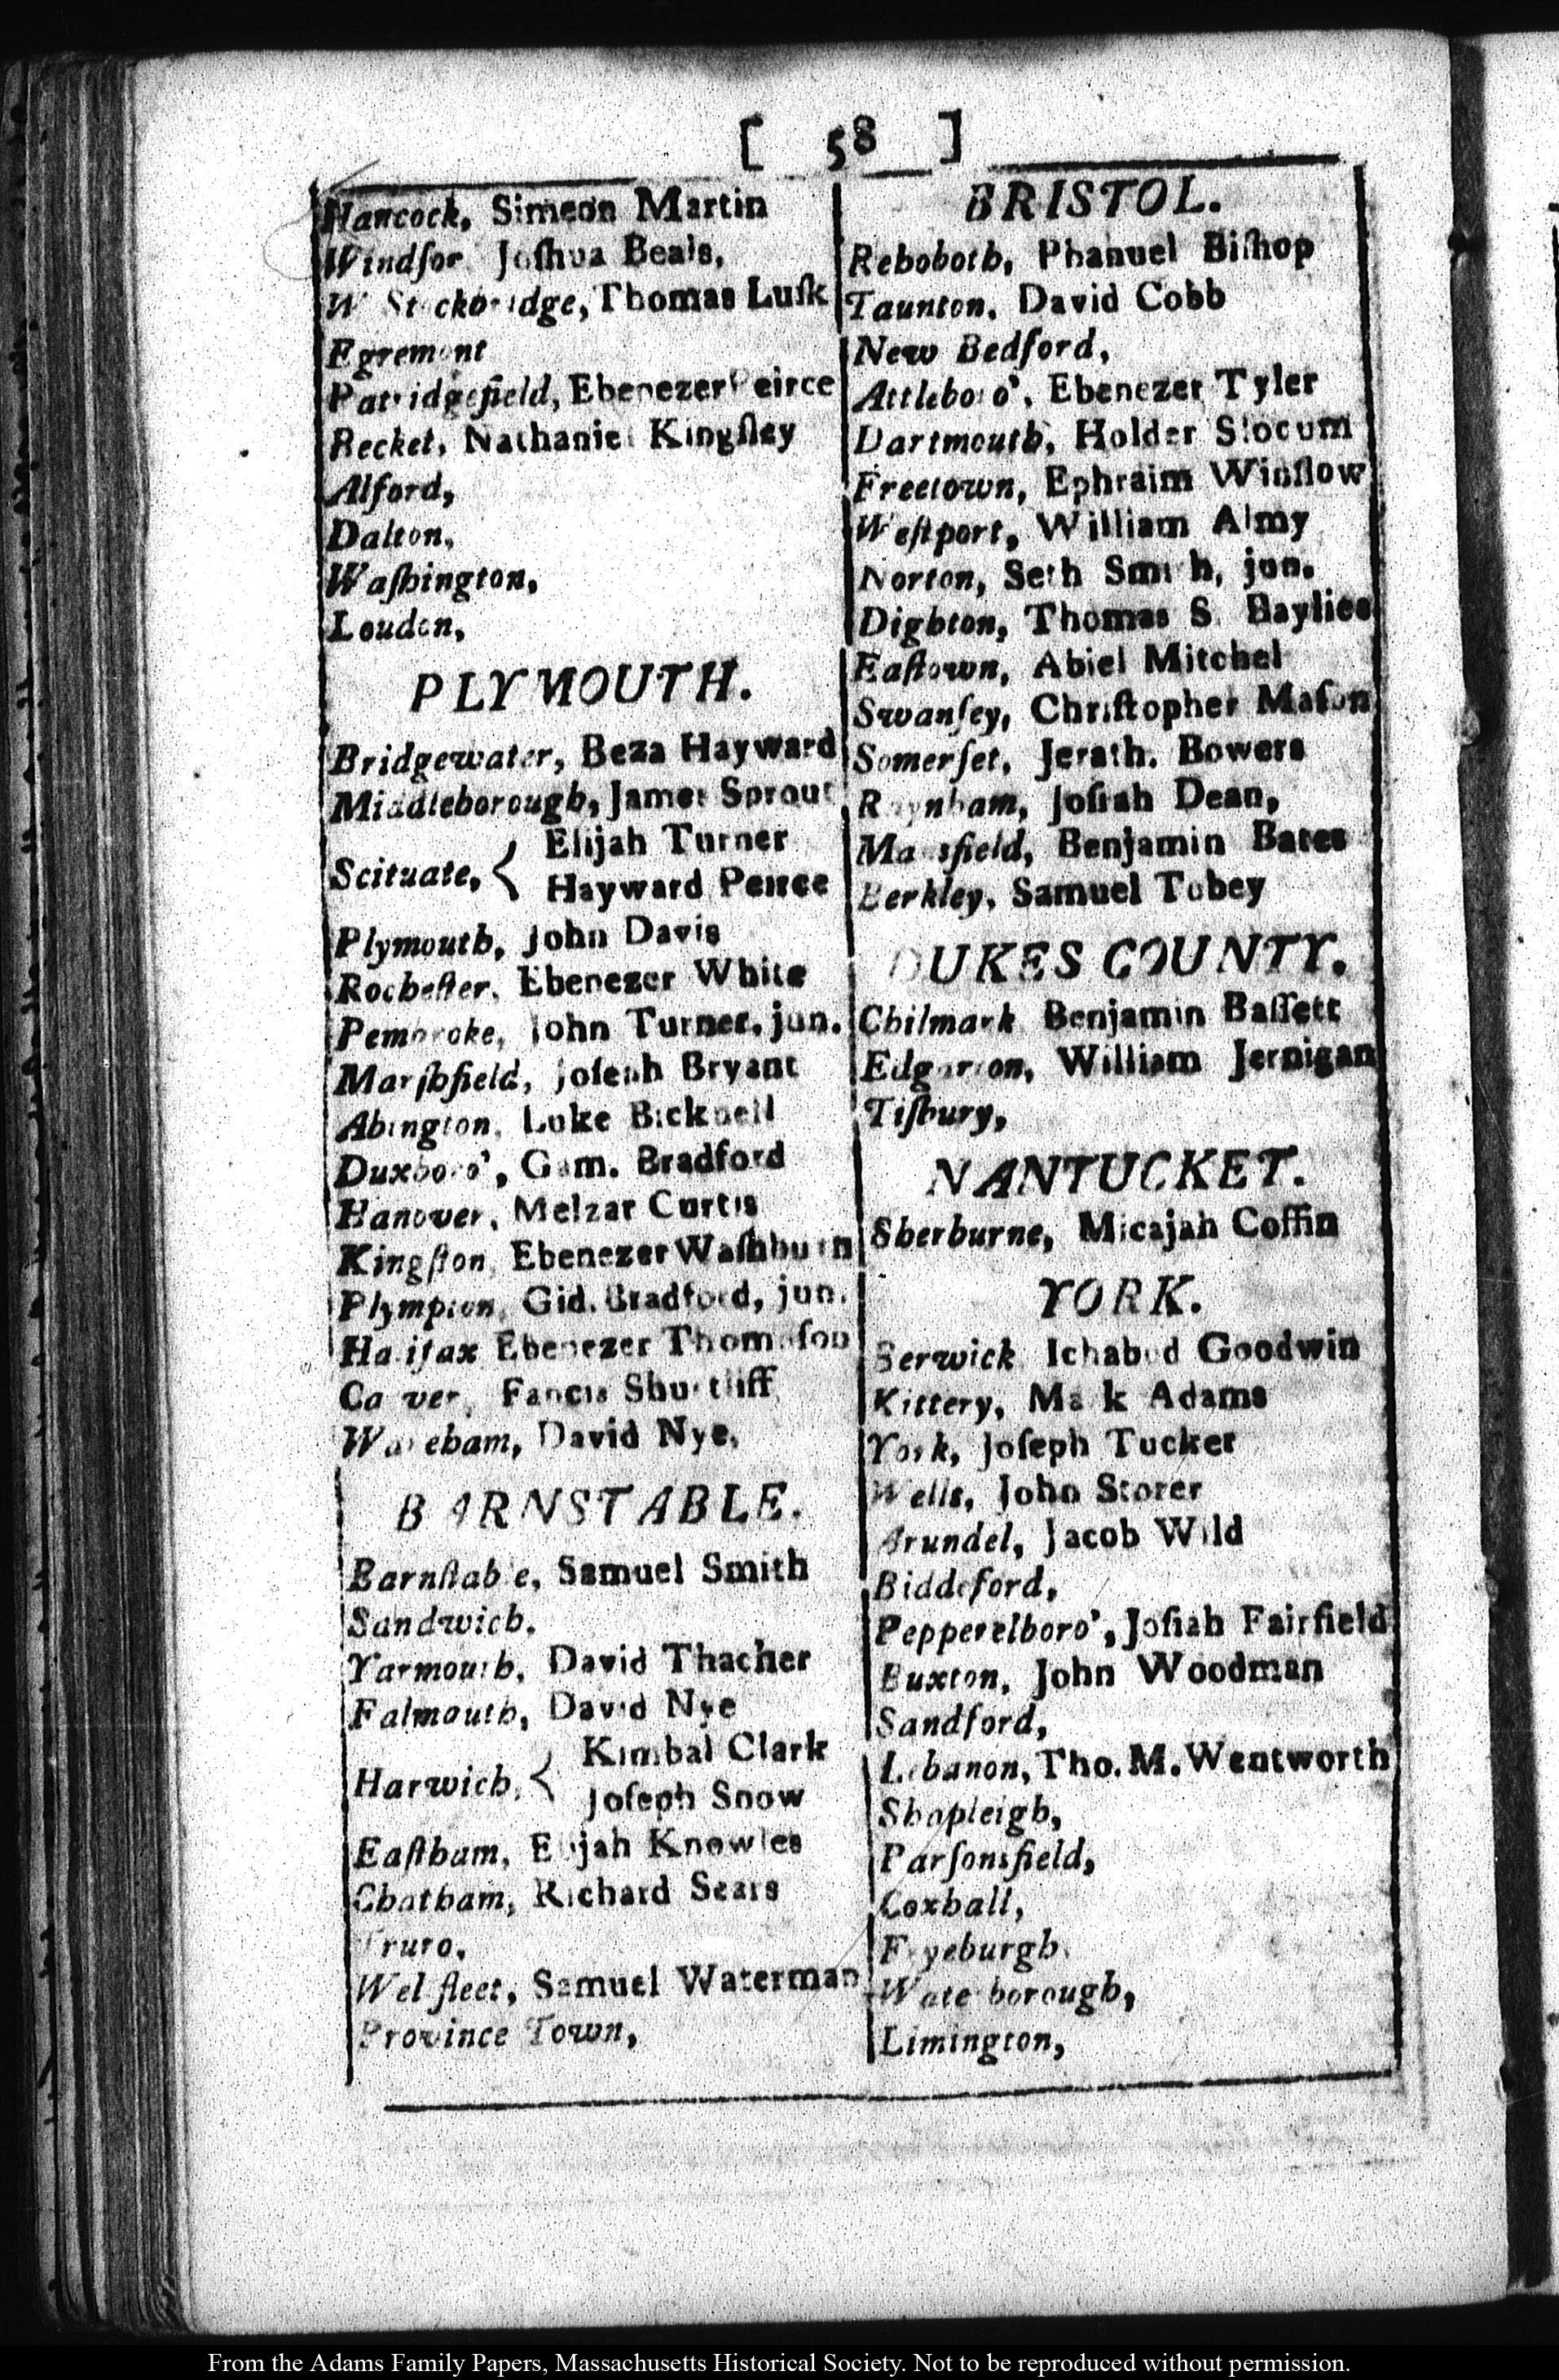 [ 58 ]
Hancock, Simeon Martin
Windſor Joſhua Beals,
W Stockbridge, Thomas Luſk
Egremont
Patridgefield, Ebenezer Peirce
Becket, Nathaniel Kingſley
Alford,
Dalton,
Waſhington,
Louden,
PLYMOUTH.
Bridgewater, Beza Hayward
Middleborough, James Sprout
Elijah Turner
Scituate, {
Hayward Peirce
Plymouth, John Davis
Rocheſter, Ebenezer White
Pembroke, John Turner, jun.
Marſhfield, Joſeph Bryant
Abington, Luke Bicknell
Duxboro', Gam. Bradford
Hanover, Melzar Curtis
Kingſton, Ebenezer Waſhburn
Plympton, Gid. Bradford, jun.
Halifax Ebenezer Thompſon
Carver, Fancis Shurtliff
Wareham, David Nye,
BARNSTABLE.
Barnſtable, Samuel Smith
Sandwich,
Yarmouth, David Thacher
Falmouth, David Nye
Kimbal Clark
Harwich, {
Joſeph Snow
Eaſtham, Elijah Knowles
Chatham, Richard Sears
Truro,
Welfleet, Samuel Waterman
Province Town,
BRISTOL.
Rehoboth, Phanuel Biſhop
Taunton, David Cobb
New Bedford,
Attleboro', Ebenezer Tyler
Dartmouth, Holder Slocum
Freetown, Ephraim Winſlow
Weſtport, William Almy
Norton, Seth Smith, jun.
Dighton, Thomas S. Baylies
Eaſtown, Abiel Mitchel
Swanſey, Chriſtopher Maſon
Somerſet, Jerath. Bowers
Raynham, Joſiah Dean,
Mansfield, Benjamin Bates
Berkley, Samuel Tobey
DUKES COUNTY.
Chilmark Benjamin Baſſett
Edgarton, William Jernigan
Tiſbury,
NANTUCKET.
Sherburne, Micajah Coffin
YORK.
Berwick Ichabod Goodwin
Kittery, Mark Adams
York, Joſeph Tucker
Wells, John Storer
Arundel, Jacob Wild
Biddeford,
Pepperelboro', Joſiah Fairfield
Buxton, John Woodman
Sandford,
Lebanon, Tho. M. Wentworth
Shapleigh,
Parſonsfield,
Coxhall,
Fryeburgh
Waterborough,
Limington,
From the Adams Family Papers, Massachusetts Historical Society. Not to be reproduced without permission.